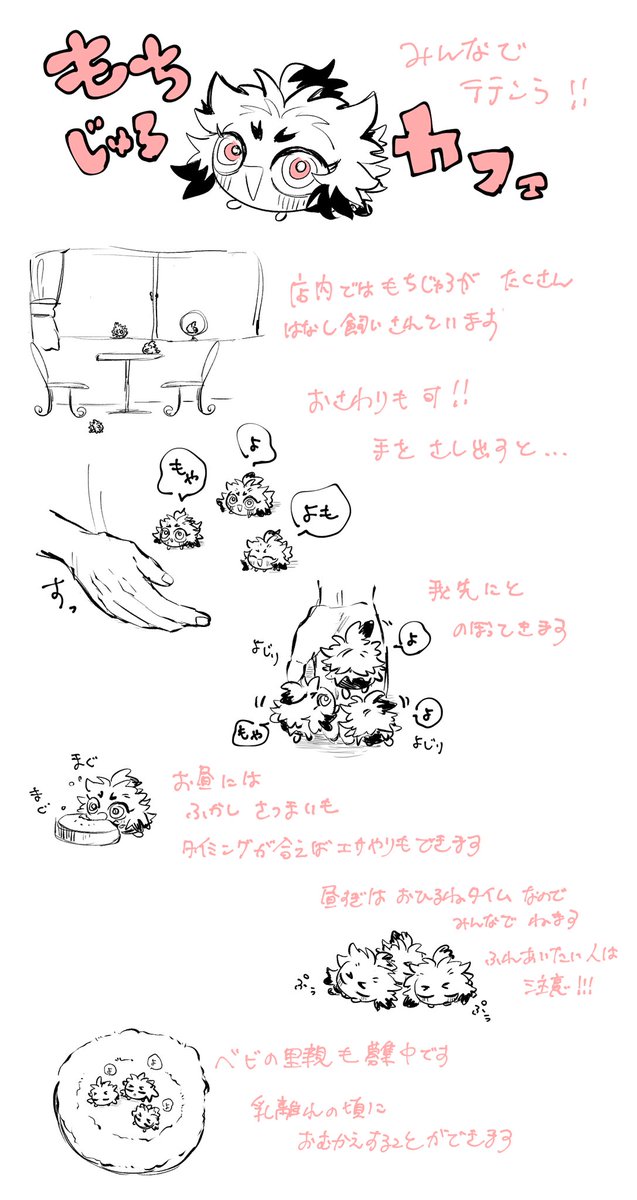 もちじゅろカフェ
みんなで
テテンろ!!
店内ではもちじゅろが たくさん
はなし飼いされています
おさわりも可!!
手を さし出すと...
よ
もや
よも
すっ
我先にと
のぼってきます
よ
よじり
もや
よ
よじり
まぐ
まぐ
お昼には
ふかし さつまいも
タイミングが合えばエサやりもできます
昼すぎは おひるねタイム なので
みんなで ねます
ふれあいたい人は
注意!!!
ぷぅ
ぷぅ
よ
よ
よ
ベビの里親も募集中です
乳離れの頃に
おむかえすることができます